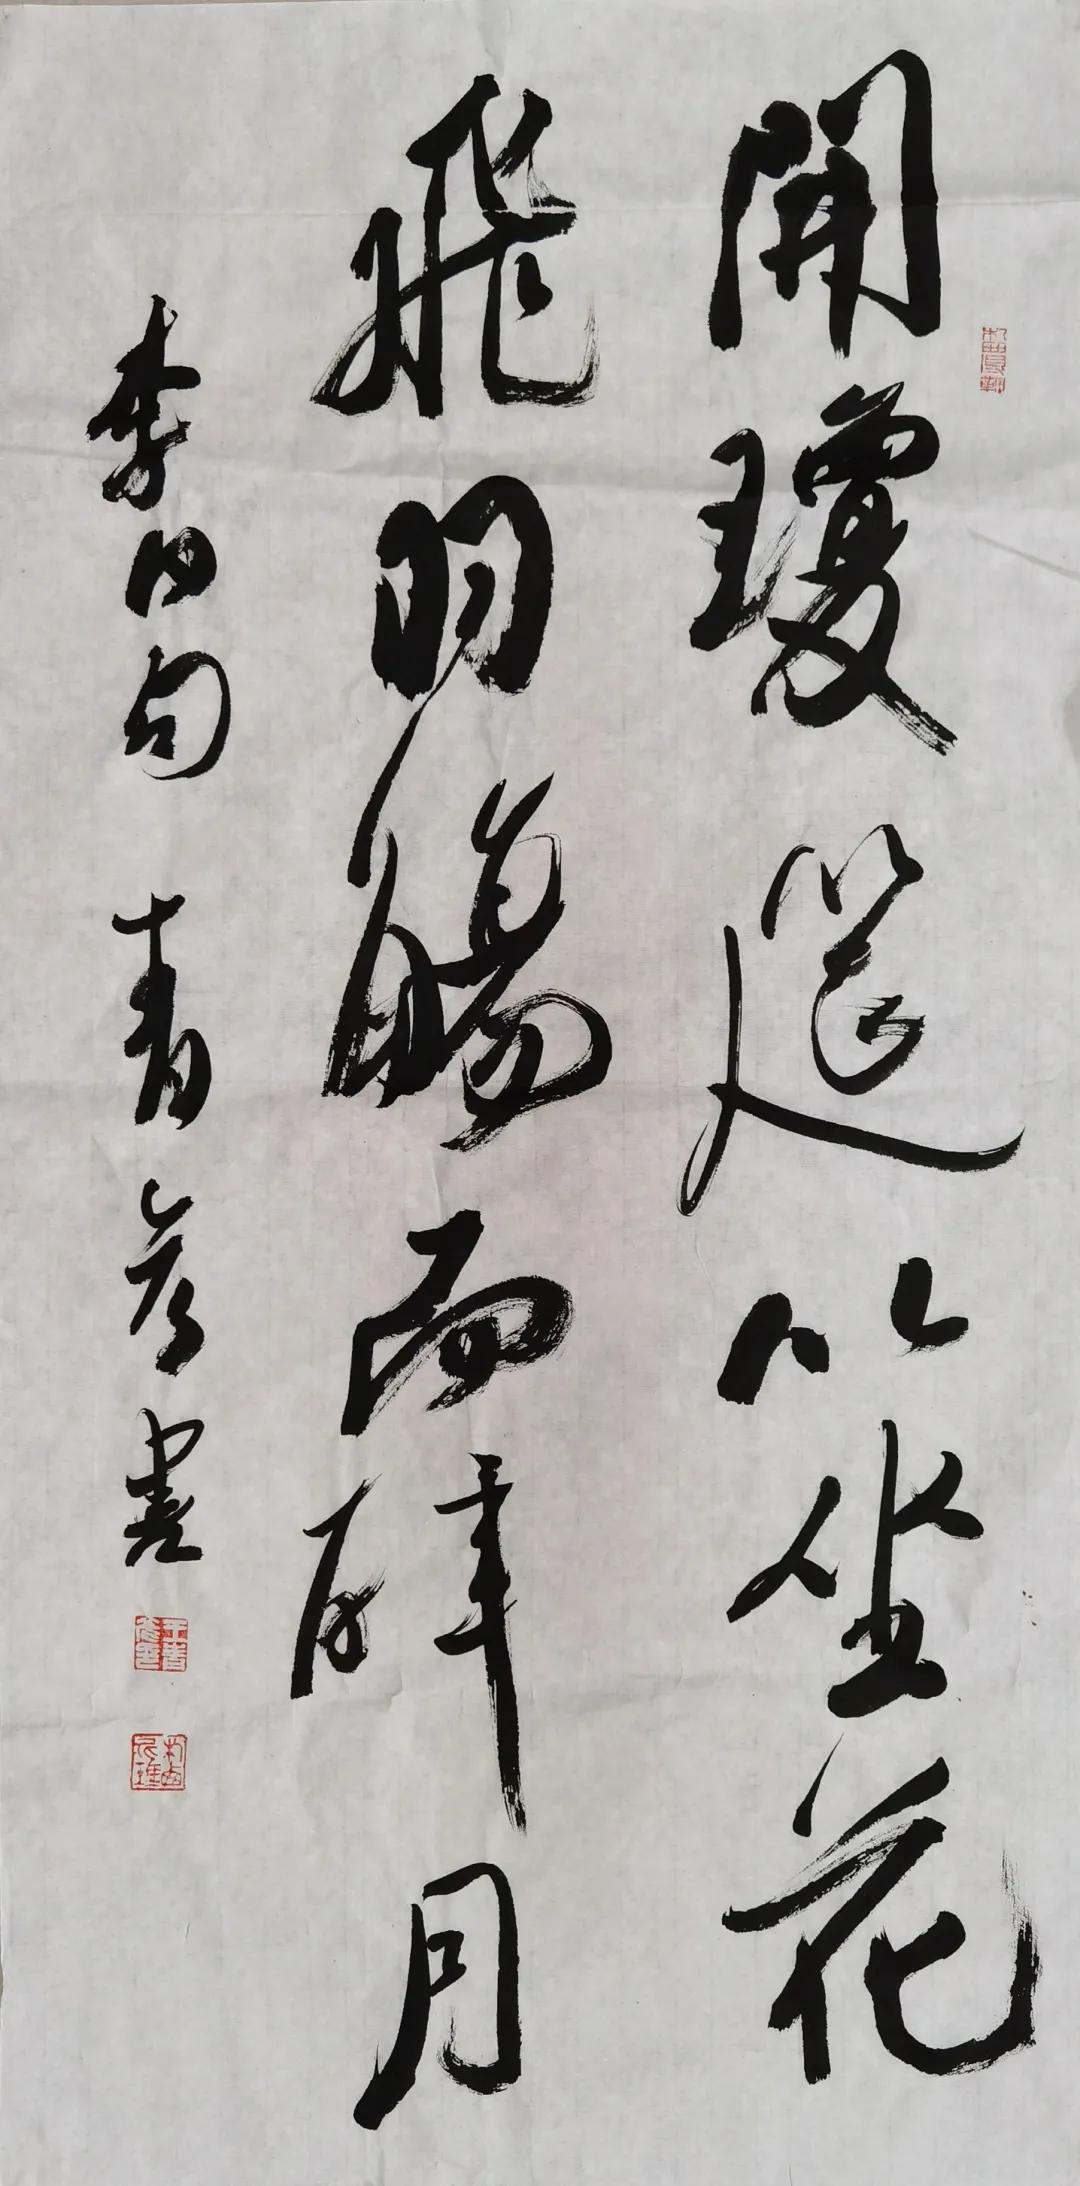 開瓊筵以坐花
飛羽觴而醉月
李白句 青彦書